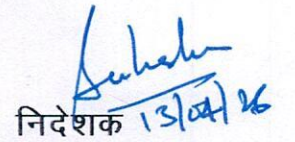 निदेशक 13/04/26